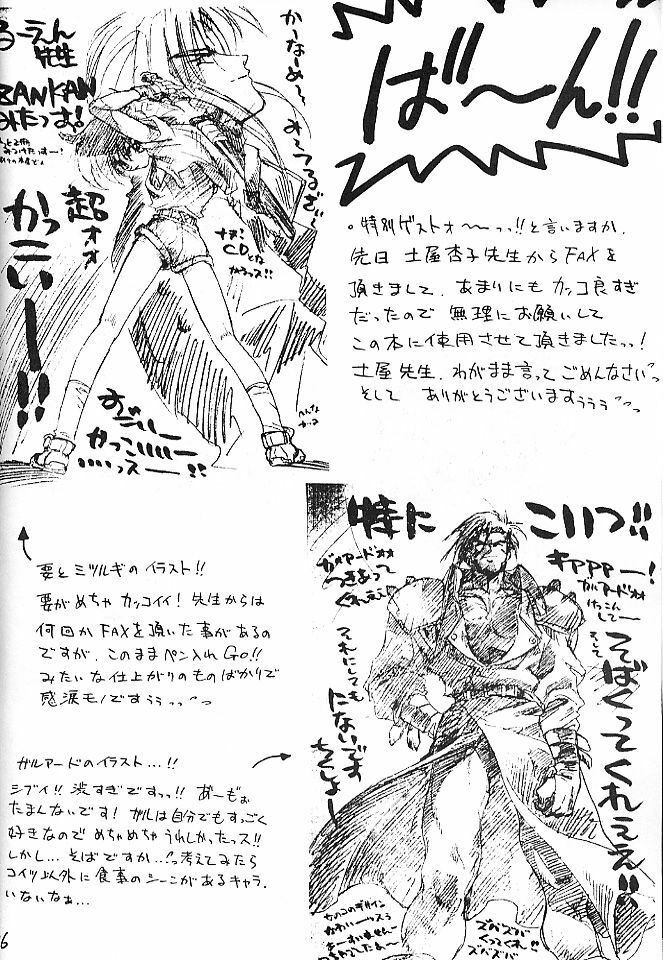 ば〜ん!!
。特別ゲストォ〜〜っ!!と言いますか、
先日 土屋杏子先生からFAXを
頂きまして、あまりにも カッコ良すぎ
だったので 無理にお願いして
この本に使用させて頂きましたっ!
土屋先生、わがまま言って ごめんなさいっ
そして ありがとうございますぅぅぅ
るーえん
先生
ZANKAN
みたっす!
超
オオ
かっこいー!!
かーなーめー
みてるぎぃ〜
CDとな
すっごいー
かっこいいいー
いいっスー!!
要とミツルギの イラスト!!
要がめちゃ カッコイイ! 先生からは
何回か FAXを頂いた事があるの
ですが、このままペン入れ Go!!
みたいな仕上がりのものばかりで
感涙モノですぅぅっっ
ガルアードのイラスト…!!
シブイ!! 渋すぎですっっ!! あーもぉ
たまんないです! ガルは自分でもすっごく
好きなので めちゃめちゃ うれしかったっス!!
しかし… そばですか… 考えてみたら
コイツ以外に食事のシーンがあるキャラ、
いないなぁ…
特に こいつ!!
ガルアードオオ
つきあって
くれええ
キャアアアー!
ガルアードオオ
けっこん
してー
そして
そばくってくれええ!!
それにしても
にないです
ちくしょー
女のコのデザイン
かわいーっスぅ
すいません
ズバズバ
くってくれ!!
ズバズバ
6